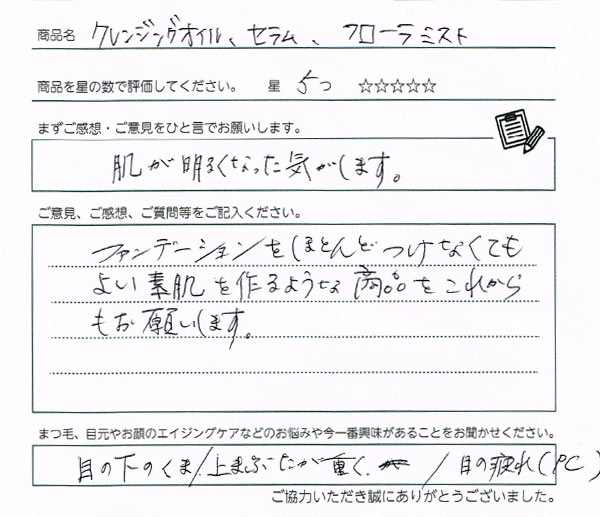 商品名 クレンジングオイル、セラム、フローラミスト
商品を星の数で評価してください。 星 5つ ☆☆☆☆☆
まずご感想・ご意見をひと言でお願いします。
肌が明るくなった気がします。
ご意見、ご感想、ご質問等をご記入ください。
ファンデーションをほとんどつけなくても
よい素肌を作るような商品をこれから
もお願いします。
まつ毛、目元やお顔のエイジングケアなどのお悩みや今一番興味があることをお聞かせください。
目の下のくま/上まぶたが重く、/目の疲れ(PC)
ご協力いただき誠にありがとうございました。